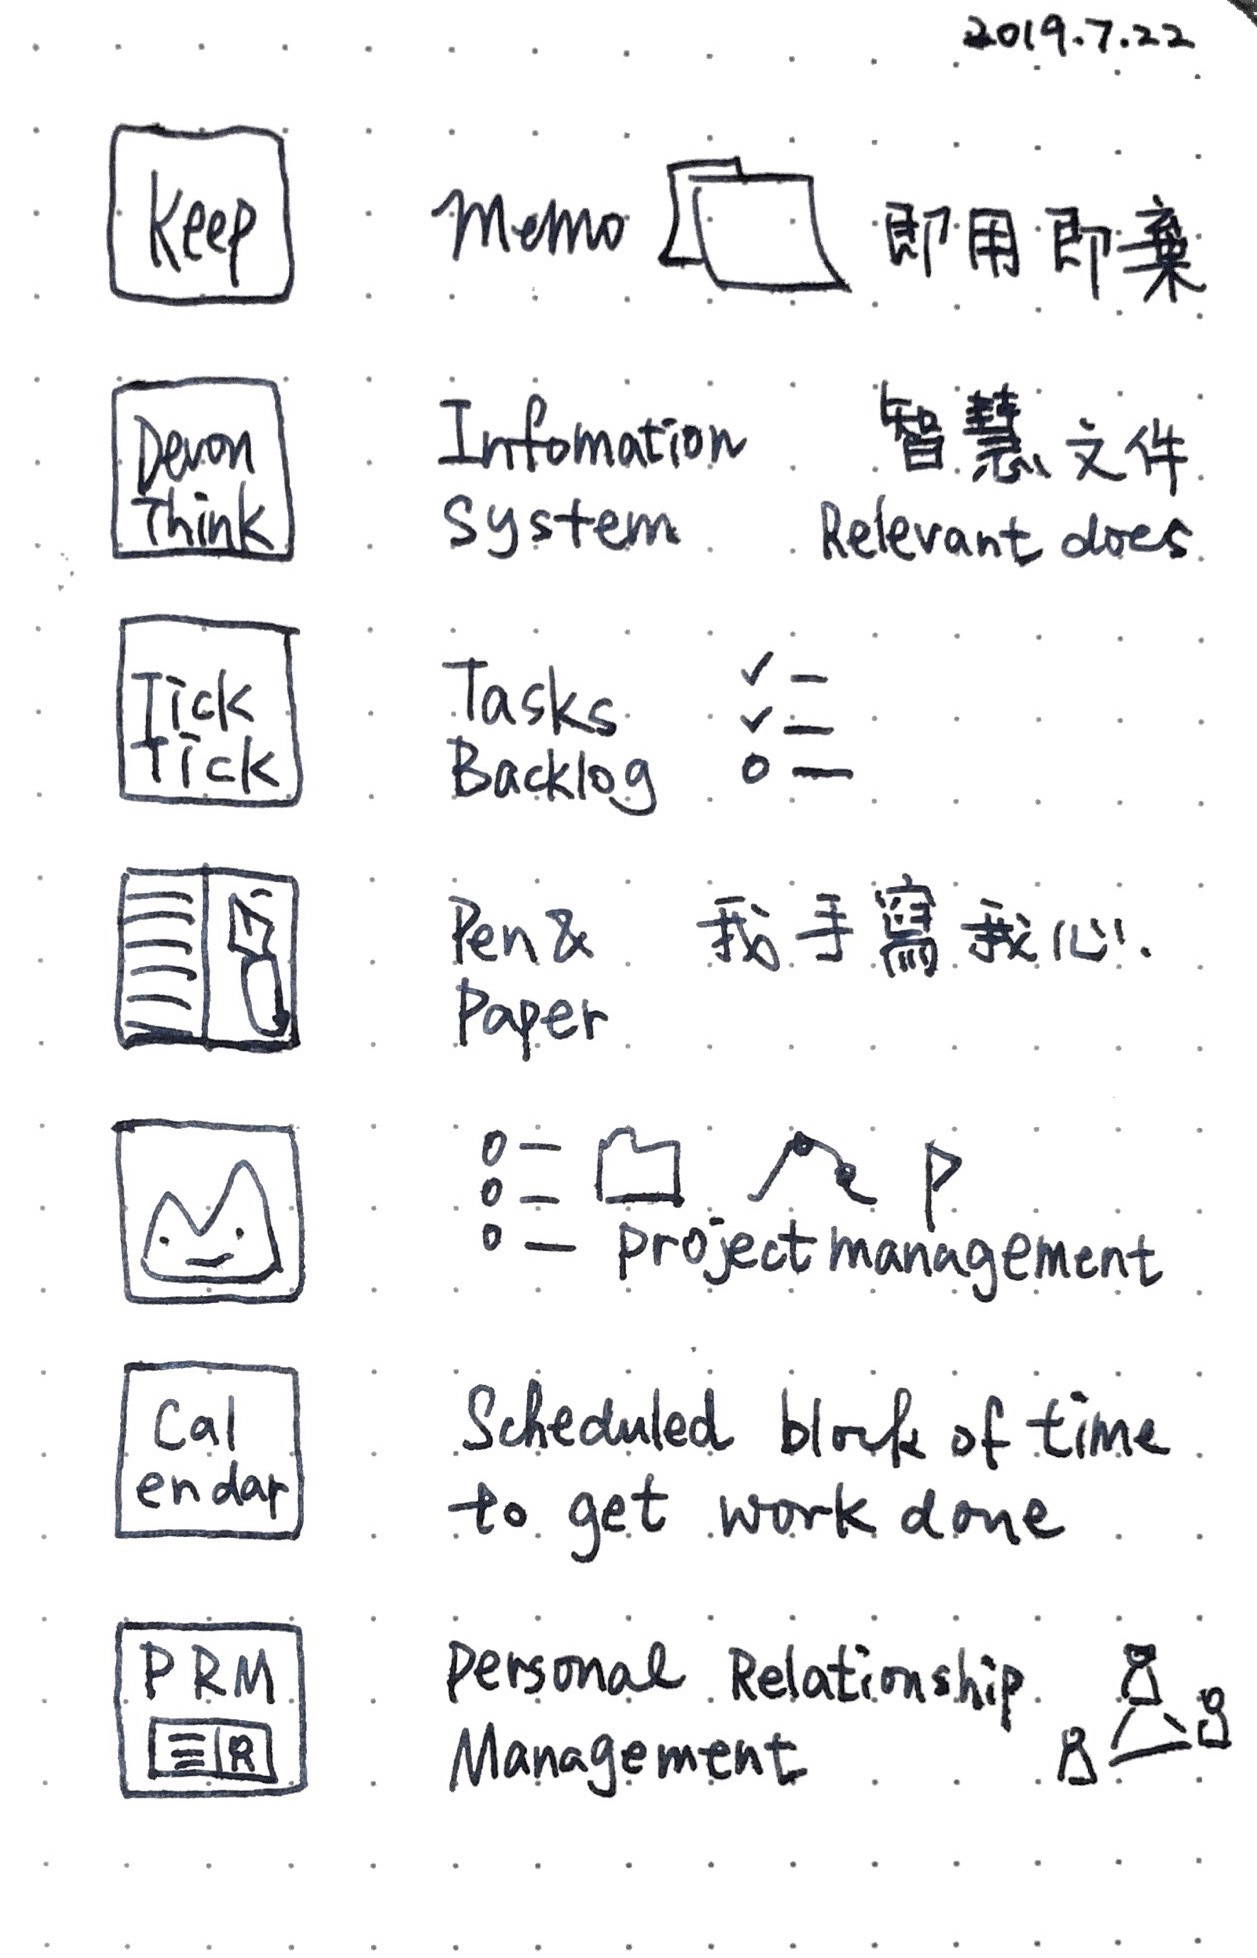 2019.7.22
Keep
Memo 即用即棄
Devon
Think
Infomation 智慧文件
System Relevant does
Tick
Tick
Tasks
Backlog
Pen & 我手寫我心.
Paper
project management
Cal
endar
Scheduled block of time
to get work done
PRM
Personal Relationship
Management